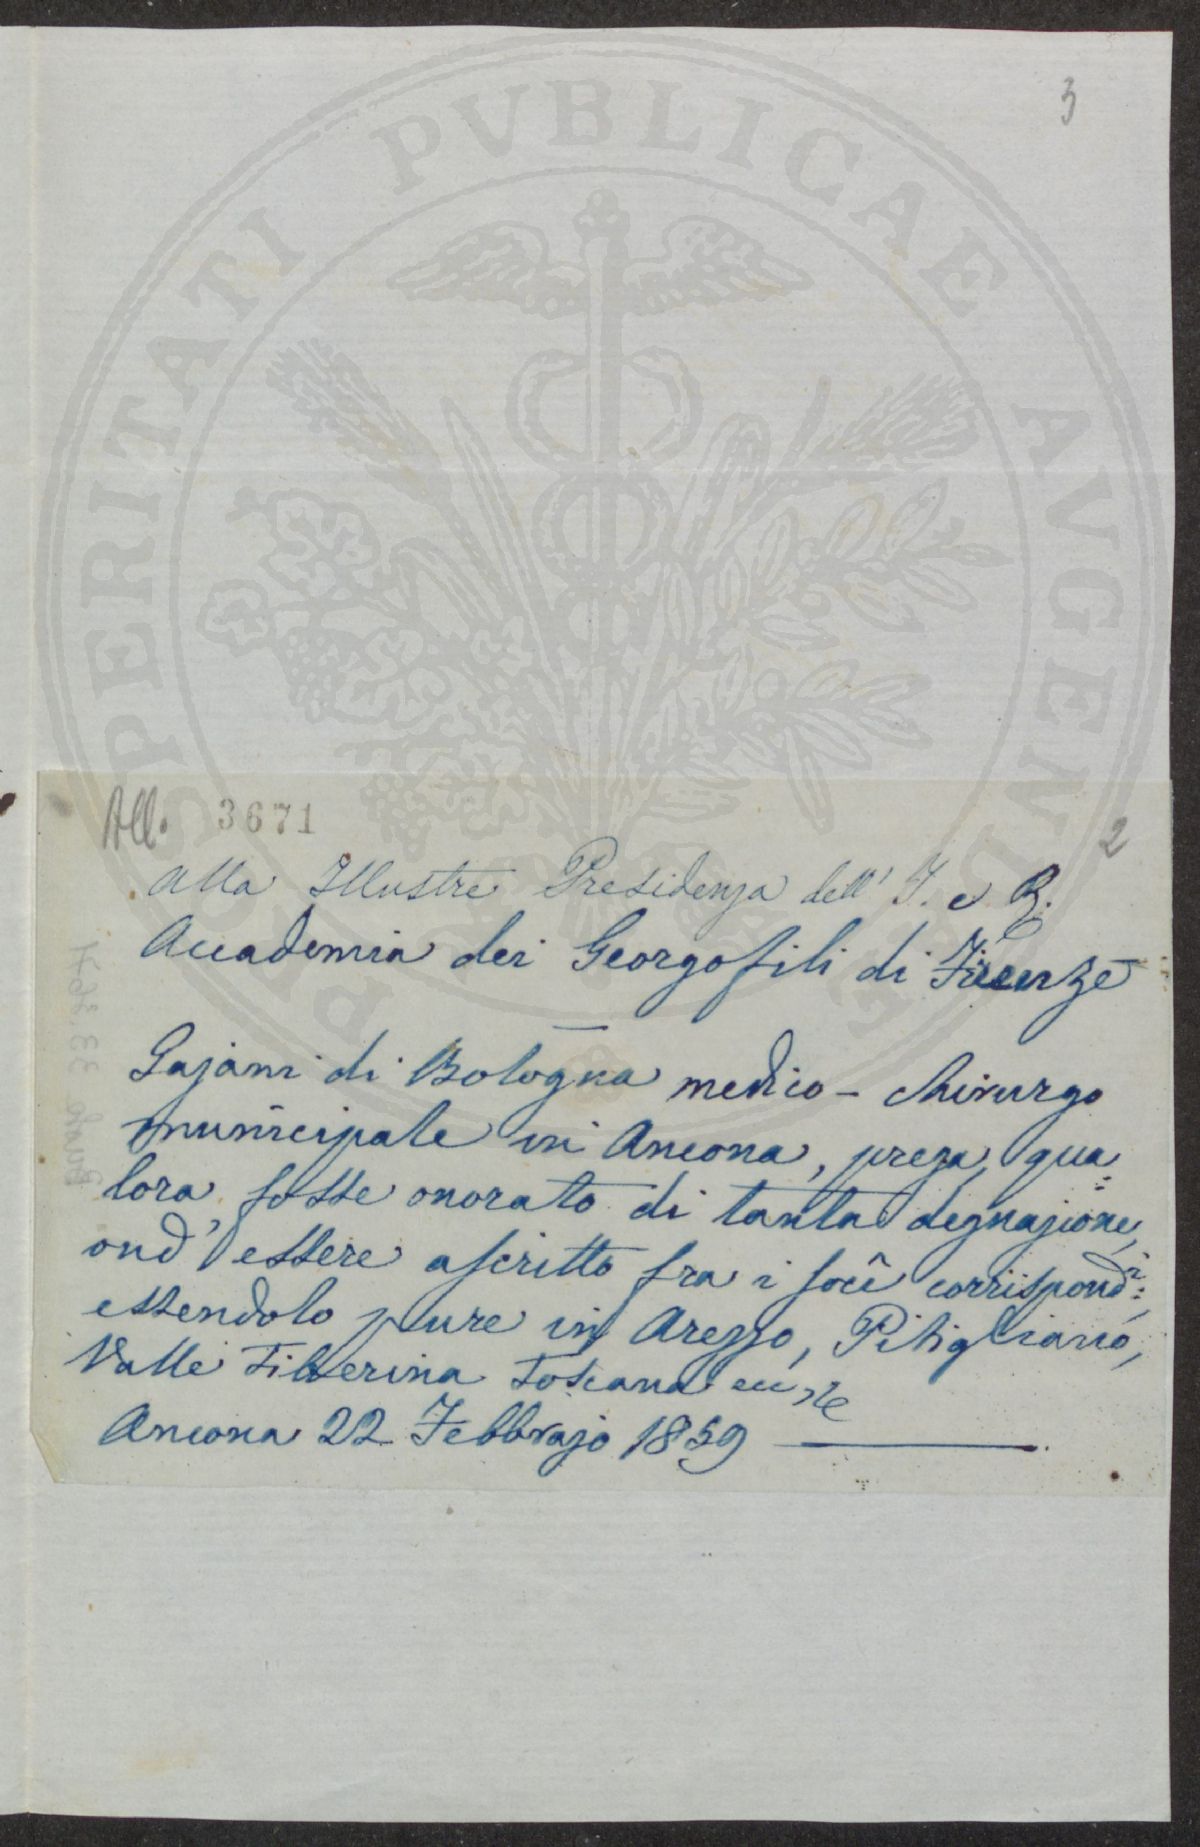 3
PROSPERITATI PVBLICAE AVGENDAE
All. 3671
2
Alla Illustre Presidenza dell' I. e R.
Accademia dei Georgofili di Firenze
Gajani di Bologna medico - chirurgo
municipale in Ancona, prega, qua=
lora fosse onorato di tanta degnazione,
ond' essere ascritto fra i socî corrispond.i:
essendolo pure in Arezzo, Pitigliano,
Valle Tiberina Toscana
Ancona 22 Febbrajo 1859